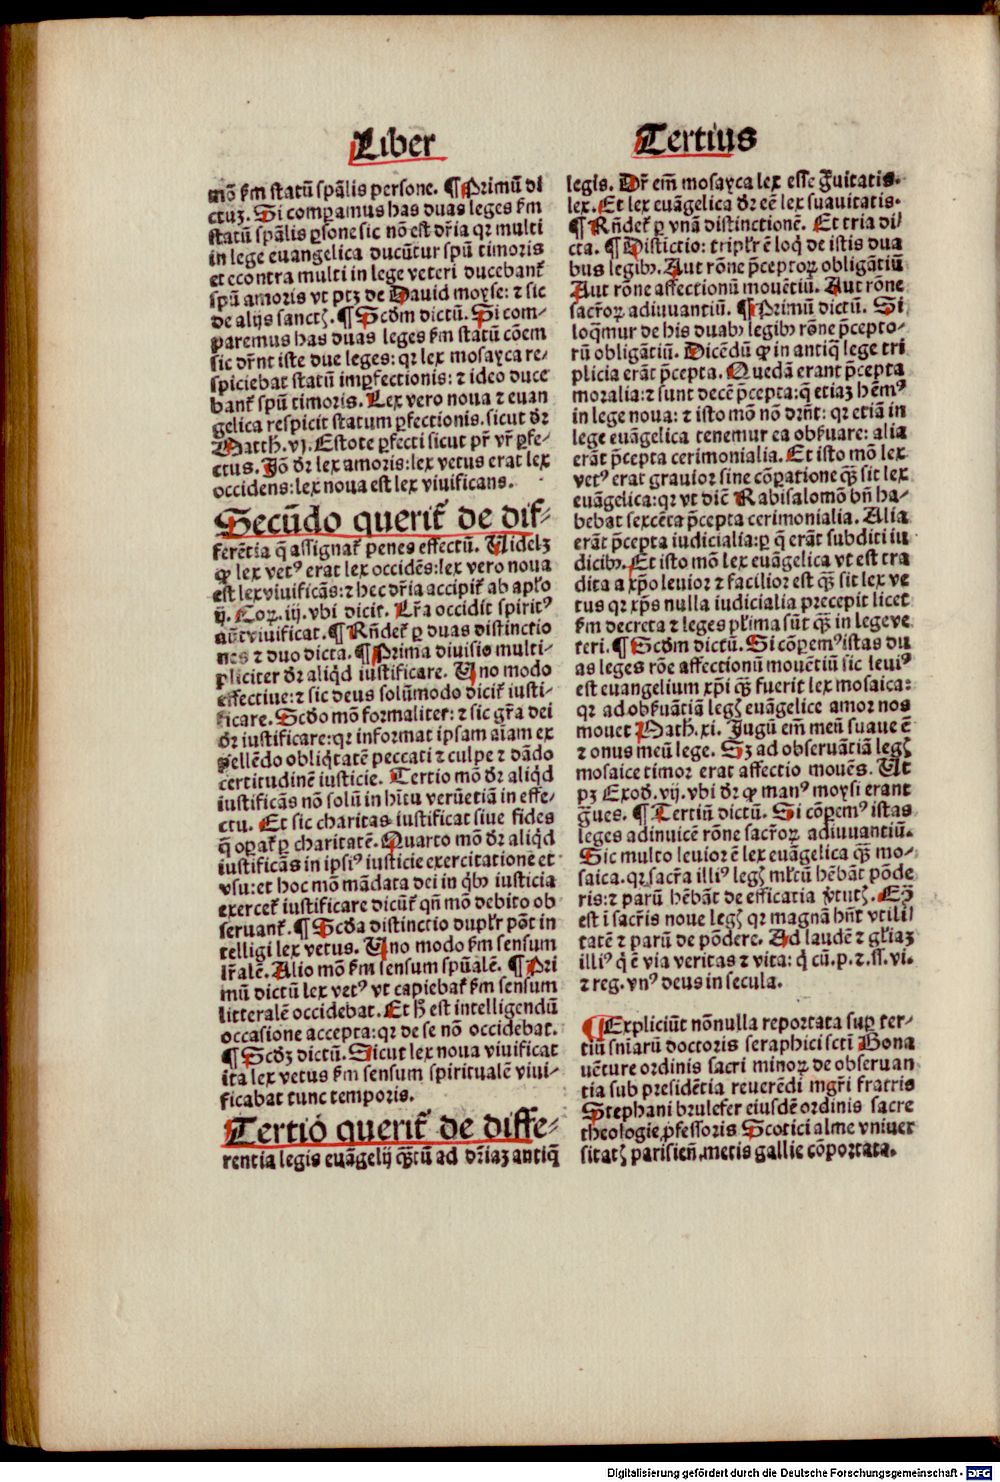 Liber
Tertius
mō ẜm statū spālis persone. ¶ Primū di
ctuꝫ. Si comparamus has duas leges ẜm
statū spālis ꝑsone sic nō est dr̄ia qꝛ multi
in lege euangelica ducūtur spū timoris
et econtra multi in lege veteri ducebant᷑
spū amoris vt ptꝫ de Dauid moyse: ⁊ sic
de alijs sanctꝭ. ¶ Scd̄m dictū. Si com-
paremus has duas leges ẜm statū cōem
sic dr̄nt iste due leges: qꝛ lex mosayca re-
spiciebat statū imꝑfectionis: ⁊ ideo duce
bant᷑ spū timoris. Lex vero noua ⁊ euan
gelica respicit statum ꝑfectionis. sicut dr̄
Matth. vj. Estote ꝑfecti sicut pr̄ vr̄ ꝑfe-
ctus. Iō dr̄ lex amoris: lex vetus erat lex
occidens: lex noua est lex viuificans.
Secūdo querit᷑ de dif-
ferētia q̄ assignat᷑ penes effectū. Videlꝫ
ꝙ lex vetꝰ erat lex occidēs: lex vero noua
est lex viuificās: ⁊ hec dr̄ia accipit᷑ ab apl̄o
ij. Coꝝ. iij. vbi dicit. Lr̄a occidit spiritꝰ
aūt viuificat. ¶ Rn̄det᷑ ꝑ duas distinctio
nes ⁊ duo dicta. ¶ Prima diuisio multi-
pliciter dr̄ aliqͥd iustificare. Uno modo
effectiue: ⁊ sic deus solūmodo dicit᷑ iusti-
ficare. Scd̄o mō formaliter: ⁊ sic gr̄a dei
dr̄ iustificare: qꝛ informat ipsam aīam ex
pellēdo obliqͥtatē peccati ⁊ culpe ⁊ dādo
certitudinē iusticie. Tertio mō dr̄ aliqͥd
iustificās nō solū in hītu verūetiā in effe-
ctu. Et sic charitas iustificat siue fides
q̄ opat᷑ ꝑ charitatē. Quarto mō dr̄ aliqͥd
iustificās in ipsiꝰ iusticie exercitatione et
vsu: et hoc mō mādata dei in qͥbꝰ iusticia
exercet᷑ iustificare dicūt᷑ qn̄ mō debito ob
seruant᷑. ¶ Scd̄a distinctio duplr̄ pōt in
telligi lex vetus. Uno modo ẜm sensum
lr̄alē. Alio mō ẜm sensum spūalē. ¶ Pri
mū dictū lex vetꝰ vt capiebat᷑ ẜm sensum
litteralē occidebat. Et hͦ est intelligendū
occasione accepta: qꝛ de se nō occidebat.
¶ Scd̄ꝫ dictū. Sicut lex noua viuificat
ita lex vetus ẜm sensum spiritualē viui-
ficabat tunc temporis.
Tertio querit᷑ de diffe-
rentia legis euāgelij qꝫ̄tū ad dr̄iaꝫ antiq̄
legis. Dr̄ em̄ mosayca lex esse gͣuitatis
lex. Et lex euāgelica dr̄ eē lex suauitatis.
¶ Rn̄det᷑ ꝑ vnā distinctionē. Et tria di-
cta. ¶ Distictio: triplr̄ ē loqͥ de istis dua
bus legibꝰ. Aut rōne p̄ceptoꝝ obligātiū
Aut rōne affectionū mouētiū. Aut rōne
sacr̄oꝝ adiuuantiū. ¶ Primū dictū. Si
loqͣmur de his duabꝰ legibꝰ rōne p̄cepto-
rū obligātiū. Dicēdū ꝙ in antiq̄ lege tri
plicia erāt p̄cepta. Quedā erant p̄cepta
moralia: ⁊ sunt decē p̄cepta: q̄ etiaꝫ hēmꝰ
in lege noua: ⁊ isto mō nō dr̄nt: qꝛ etiā in
lege euāgelica tenemur ea obẜuare: alia
erāt p̄cepta cerimonialia. Et isto mō lex
vetꝰ erat grauior sine cōꝑatione qꝫ̄ sit lex
euāgelica: qꝛ vt dicē Rabisalomō bn̄ ha-
bebat sexcēta p̄cepta cerimonialia. Alia
erāt p̄cepta iudicialia: ꝑ q̄ erāt subditi iu
dicibꝰ. Et isto mō lex euāgelica vt est tra
dita a xp̄o leuior ⁊ facilior est qꝫ̄ sit lex ve
tus qꝛ xp̄s nulla iudicialia precepit licet
ẜm decreta ⁊ leges pl̄ima sūt qꝫ̄ in lege ve
teri. ¶ Scd̄m dictū. Si cōꝑemꝰ istas du
as leges rōe affectionū mouētiū sic leuiꝰ
est euangelium xp̄i qꝫ̄ fuerit lex mosaica:
qꝛ ad obẜuātiā legꝭ euāgelice amor nos
mouet Math. xi. Iugū em̄ meū suaue ē
⁊ onus meū leue. Sꝫ ad obseruātiā legꝭ
mosaice timor erat affectio mouēs. Ut
pꝫ Exod. vij. vbi dr̄ ꝙ manꝰ moysi erant
gͣues. ¶ Tertiū dictū. Si cōꝑemꝰ istas
leges adinuicē rōne sacr̄oꝝ adiuuantiū.
Sic multo leuior ē lex euāgelica qꝫ̄ mo-
saica. qꝛ sacr̄a illiꝰ legꝭ ml̄tū hēbāt pōde
ris: ⁊ parū hēbāt de efficatia vͥtutꝭ. Eꝫ
est ī sacr̄is noue legꝭ qꝛ magnā hn̄t vtili
tatē ⁊ parū de pōdere. Ad laudē ⁊ gl̄iaꝫ
illiꝰ qͥ ē via veritas ⁊ vita: qͥ cū. p. ⁊. ss. vi.
⁊ reg. vnꝰ deus in secula.
¶ Expliciūt nōnulla reportata suꝑ ter-
tiū sn̄iarū doctoris seraphici sctī Bona
uēture ordinis sacri minoꝝ de obseruan
tia sub presidētia reuerēdi mgr̄i fratris
Stephani brulefer eiusdē ordinis sacre
theologie ꝓfessoris Scotici alme vniuer
sitatꝭ parisien̄. metis gallie cōportata.
Digitalisierung gefördert durch die Deutsche Forschungsgemeinschaft - DFG